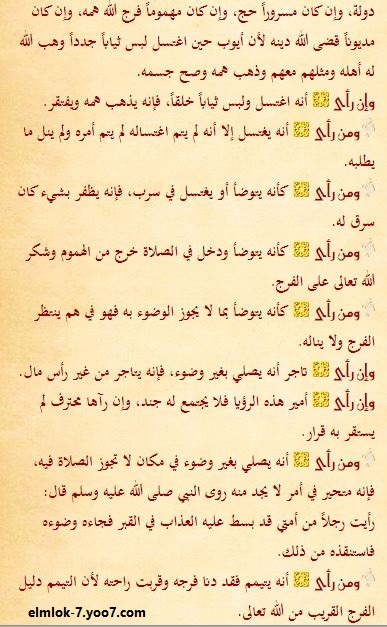 دولة، وإن كان مسروراً حج، وإن كان مهموماً فرج الله همه، وإن كان
مديوناً قضى الله دينه لأن أيوب حين اغتسل لبس ثياباً جدداً وهب الله
له أهله ومثلهم معهم وذهب همه وصح جسمه.
وإن رأى أنه اغتسل ولبس ثياباً خلقاً، فإنه يذهب همه ويفتقر.
ومن رأى أنه يغتسل إلا أنه لم يتم اغتساله لم يتم أمره ولم ينل ما
يطلبه.
ومن رأى كأنه يتوضأ أو يغتسل في سرب، فإنه يظفر بشيء كان
سرق له.
ومن رأى كأنه يتوضأ ودخل في الصلاة خرج من الهموم وشكر
الله تعالى على الفرج.
ومن رأى كأنه يتوضأ بما لا يجوز الوضوء به فهو في هم ينتظر
الفرج ولا يناله.
وإن رأى تاجر أنه يصلي بغير وضوء، فإنه يتاجر من غير رأس مال.
وإن رأى أمير هذه الرؤيا فلا يجتمع له جند، وإن رآها محترف لم
يستقر به قرار.
ومن رأى أنه يصلي بغير وضوء في مكان لا تجوز الصلاة فيه،
فإنه متحير في أمر لا يجد منه روى النبي صلى الله عليه وسلم قال:
رأيت رجلاً من أمتي قد بسط عليه العذاب في القبر فجاءه وضوءه
فاستنقذه من ذلك.
ومن رأى أنه يتيمم فقد دنا فرجه وقربت راحته لأن التيمم دليل
الفرج القريب من الله تعالى.
elmlok-7.yoo7.com